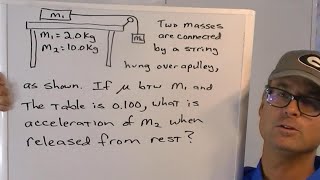 m₁
Two masses
m₁ = 2.0 kg
are connected
m₂ = 10.0 kg
m₂
by a string
hung over a pulley,
as shown. If μ btw m₁ and
The table is 0.100, what is
acceleration of m₂ when
released from rest?
G